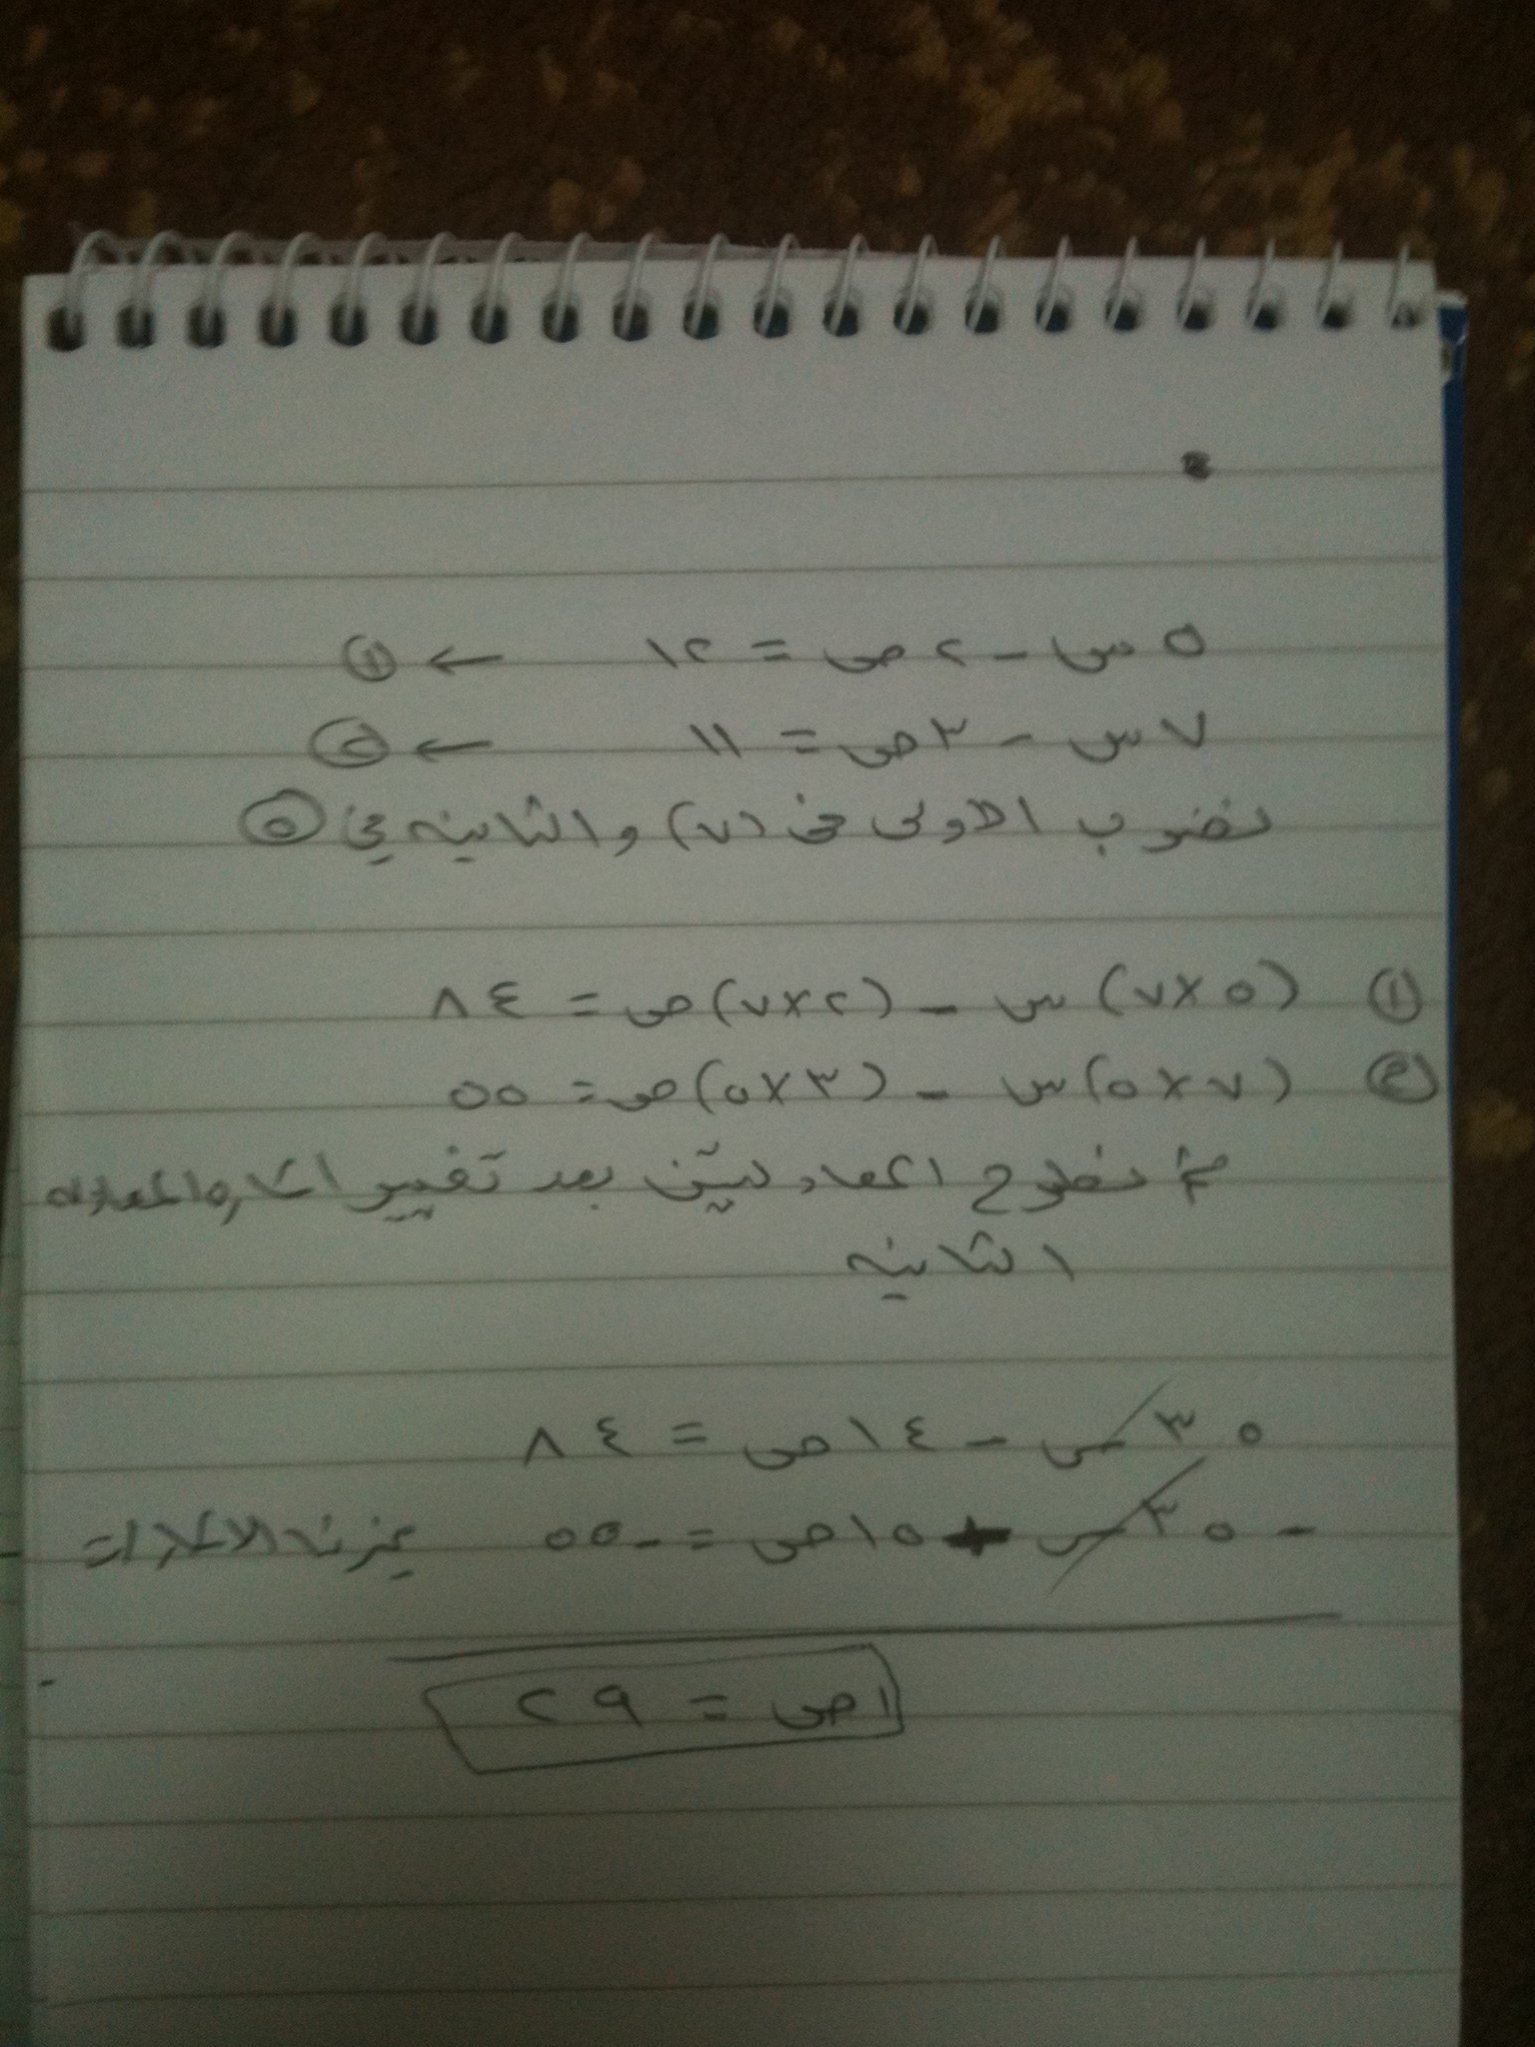 ٥س - ٢ص = ١٢ ← ①
٧س - ٣ص = ١١ ← ②
نضرب الاولى في (٧) والثانيه في ⑤
① (٥×٧)س - (٢×٧)ص = ٨٤
② (٧×٥)س - (٣×٥)ص = ٥٥
ثم نطرح المعادلتين بعد تغيير اشاره المعادله
الثانيه
٣٥س - ١٤ص = ٨٤
-٣٥س + ١٥ص = -٥٥
١ص = ٢٩